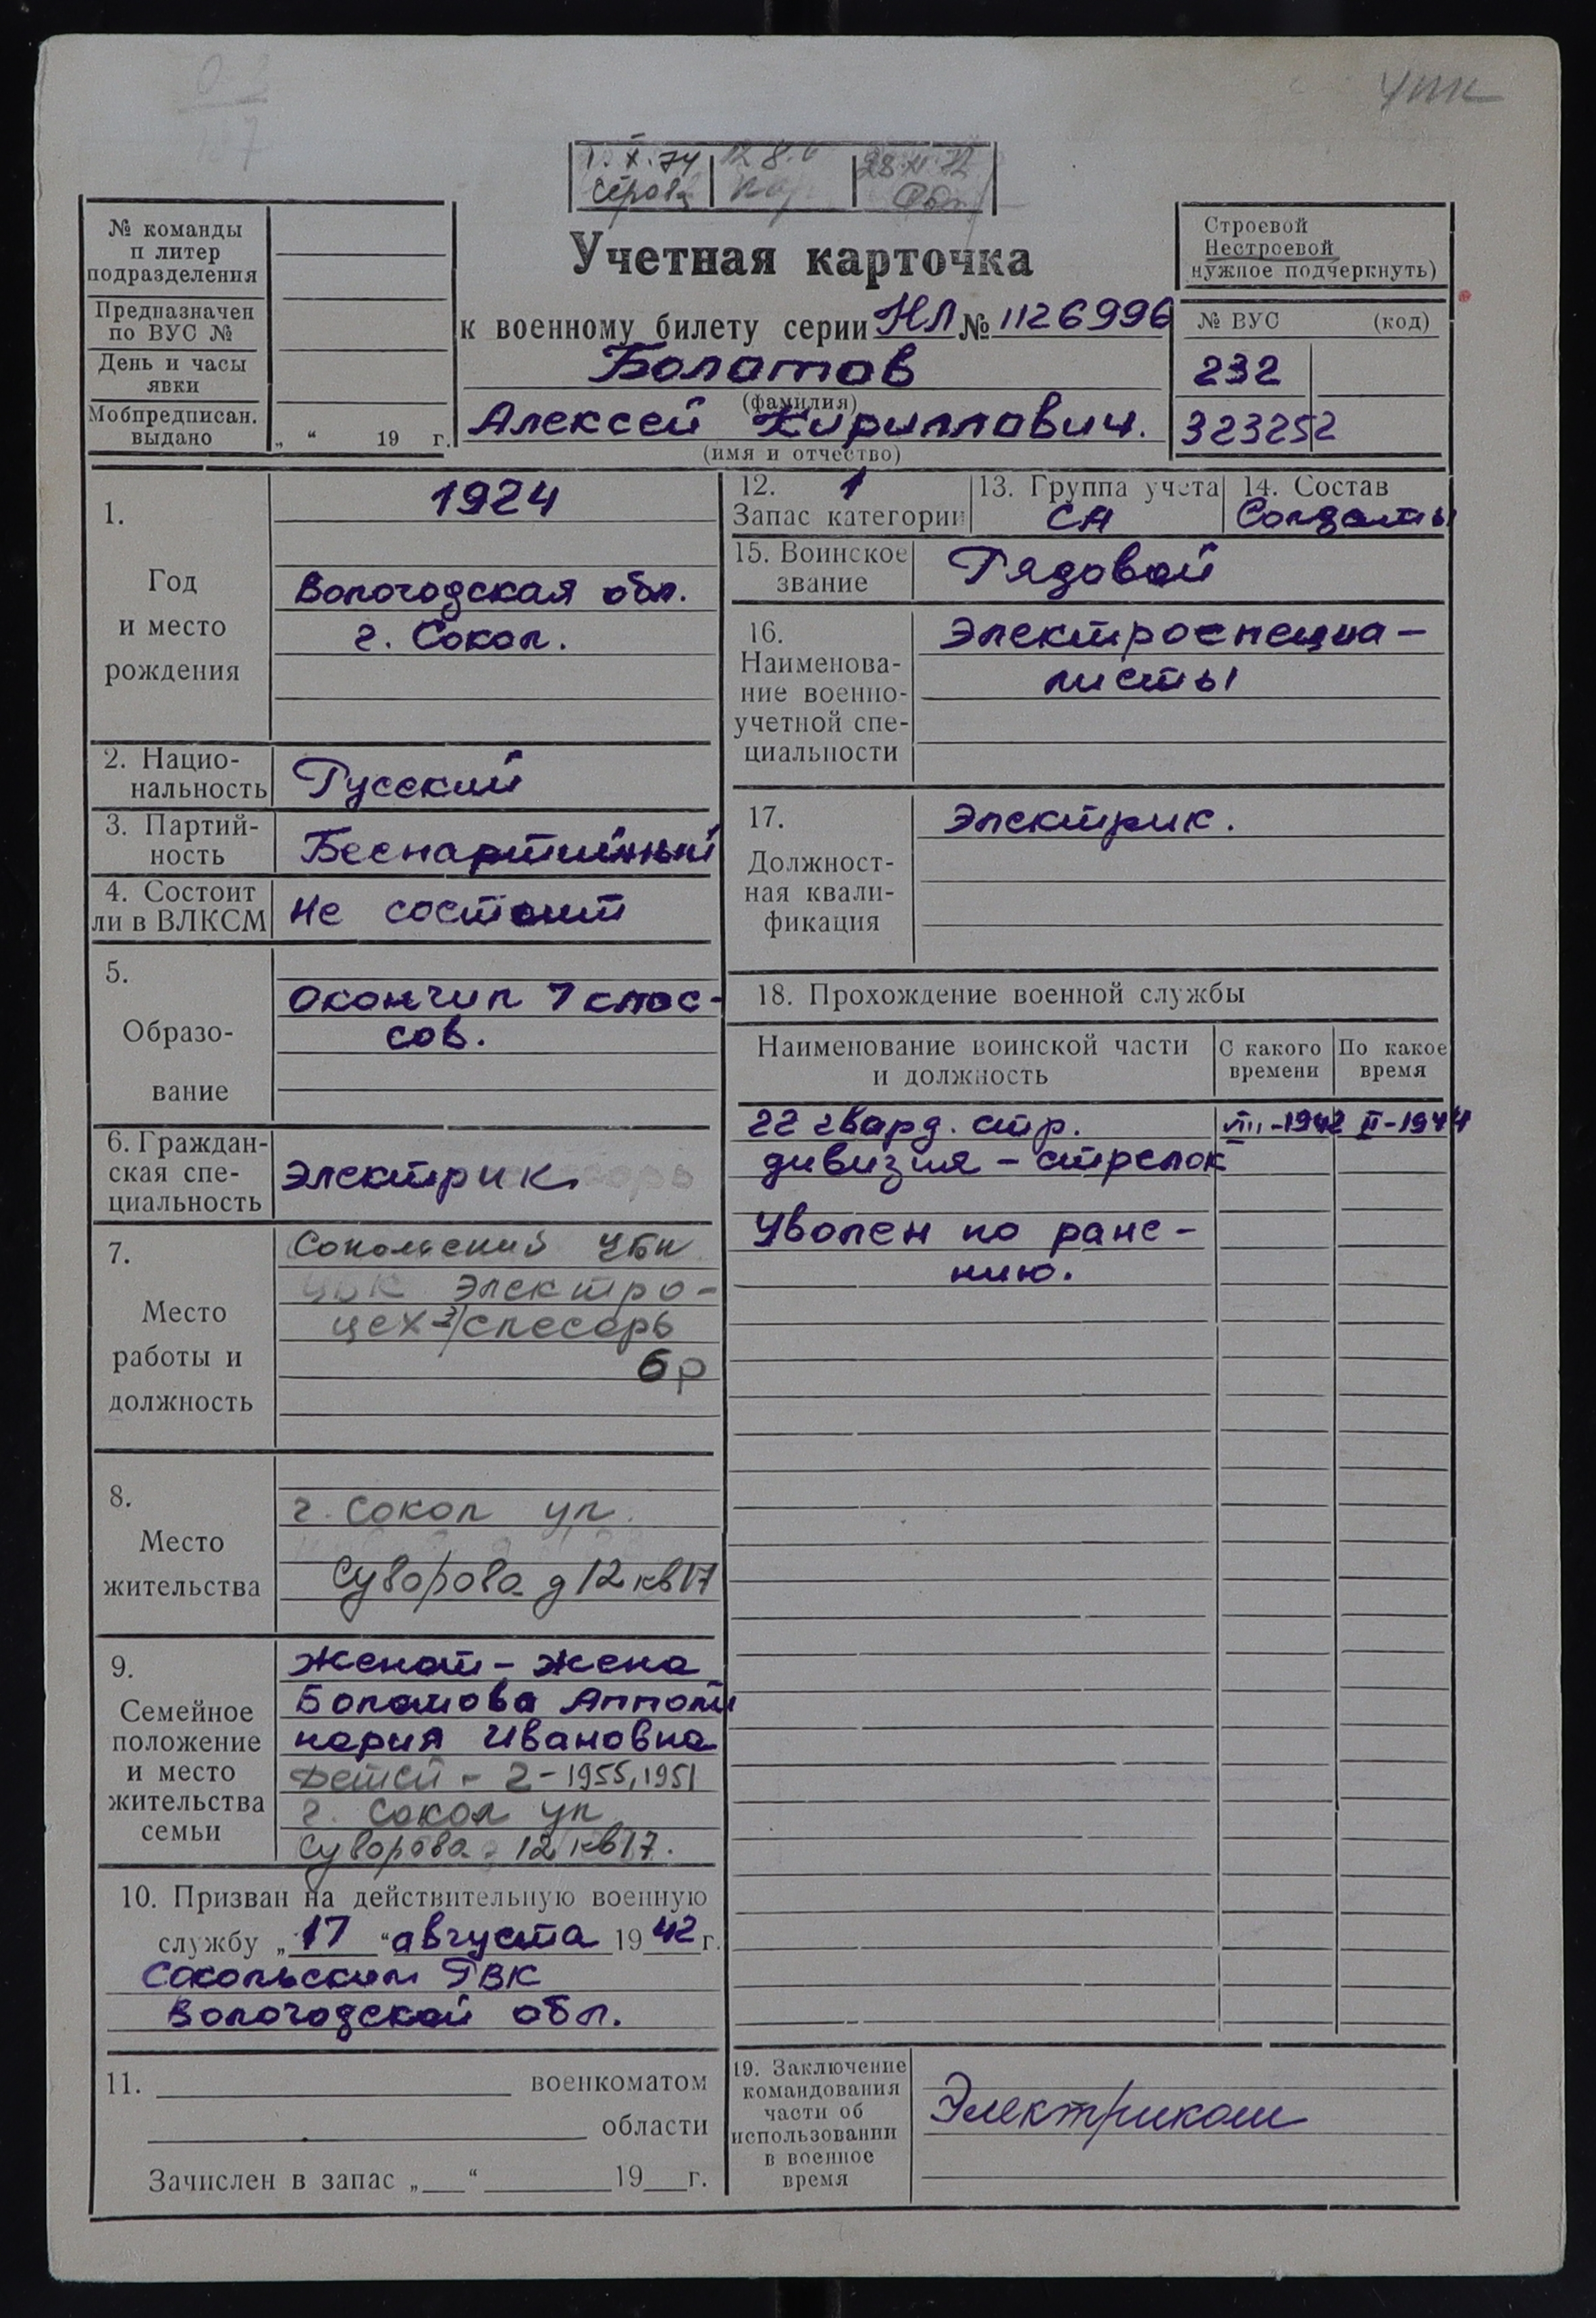 УПК
1.X.74
Серова
28.XI.72
№ команды
п литер
подразделения
Предназначен
по ВУС №
День и часы
явки
Мобпредписан.
выдано
„ “ 19 г.
Учетная карточка
к военному билету серии НЛ № 1126996
Болотов
(фамилия)
Алексей Кириллович.
(имя и отчество)
Строевой
Нестроевой
нужное подчеркнуть)
№ ВУС (код)
232
323252
1.
Год
и место
рождения
1924
Вологодская обл.
г. Сокол.
2. Нацио-
нальность
Русский
3. Партий-
ность
Беспартийный
4. Состоит
ли в ВЛКСМ
Не состоит
5.
Образо-
вание
Окончил 7 клас-
сов.
6. Граждан-
ская спе-
циальность
Электрик
7.
Место
работы и
должность
Сокольский ЦБК
ЦБК электро-
цех-э/слесарь
6р
8.
Место
жительства
г. Сокол ул.
Суворова д 12 кв 17
9.
Семейное
положение
и место
жительства
семьи
Женат - жена
Болотова Апполи
нария Ивановна
Детей - 2 - 1955, 1951
г. Сокол ул
Суворова 12 кв 17.
10. Призван на действительную военную
службу „17“ августа 1942 г.
Сокольским РВК
Вологодской обл.
11. военкоматом
области
Зачислен в запас „ “ 19 г.
12. 1
Запас категории
13. Группа учета
СА
14. Состав
Солдаты
15. Воинское
звание
Рядовой
16.
Наименова-
ние военно-
учетной спе-
циальности
Электроспециа-
листы
17.
Должност-
ная квали-
фикация
Электрик.
18. Прохождение военной службы
Наименование воинской части
и должность
С какого
времени
По какое
время
22 гвард. стр. VIII-1942 II-1944
дивизия - стрелок
Уволен по ране-
нию.
19. Заключение
командования
части об
использовании
в военное
время
Электриком